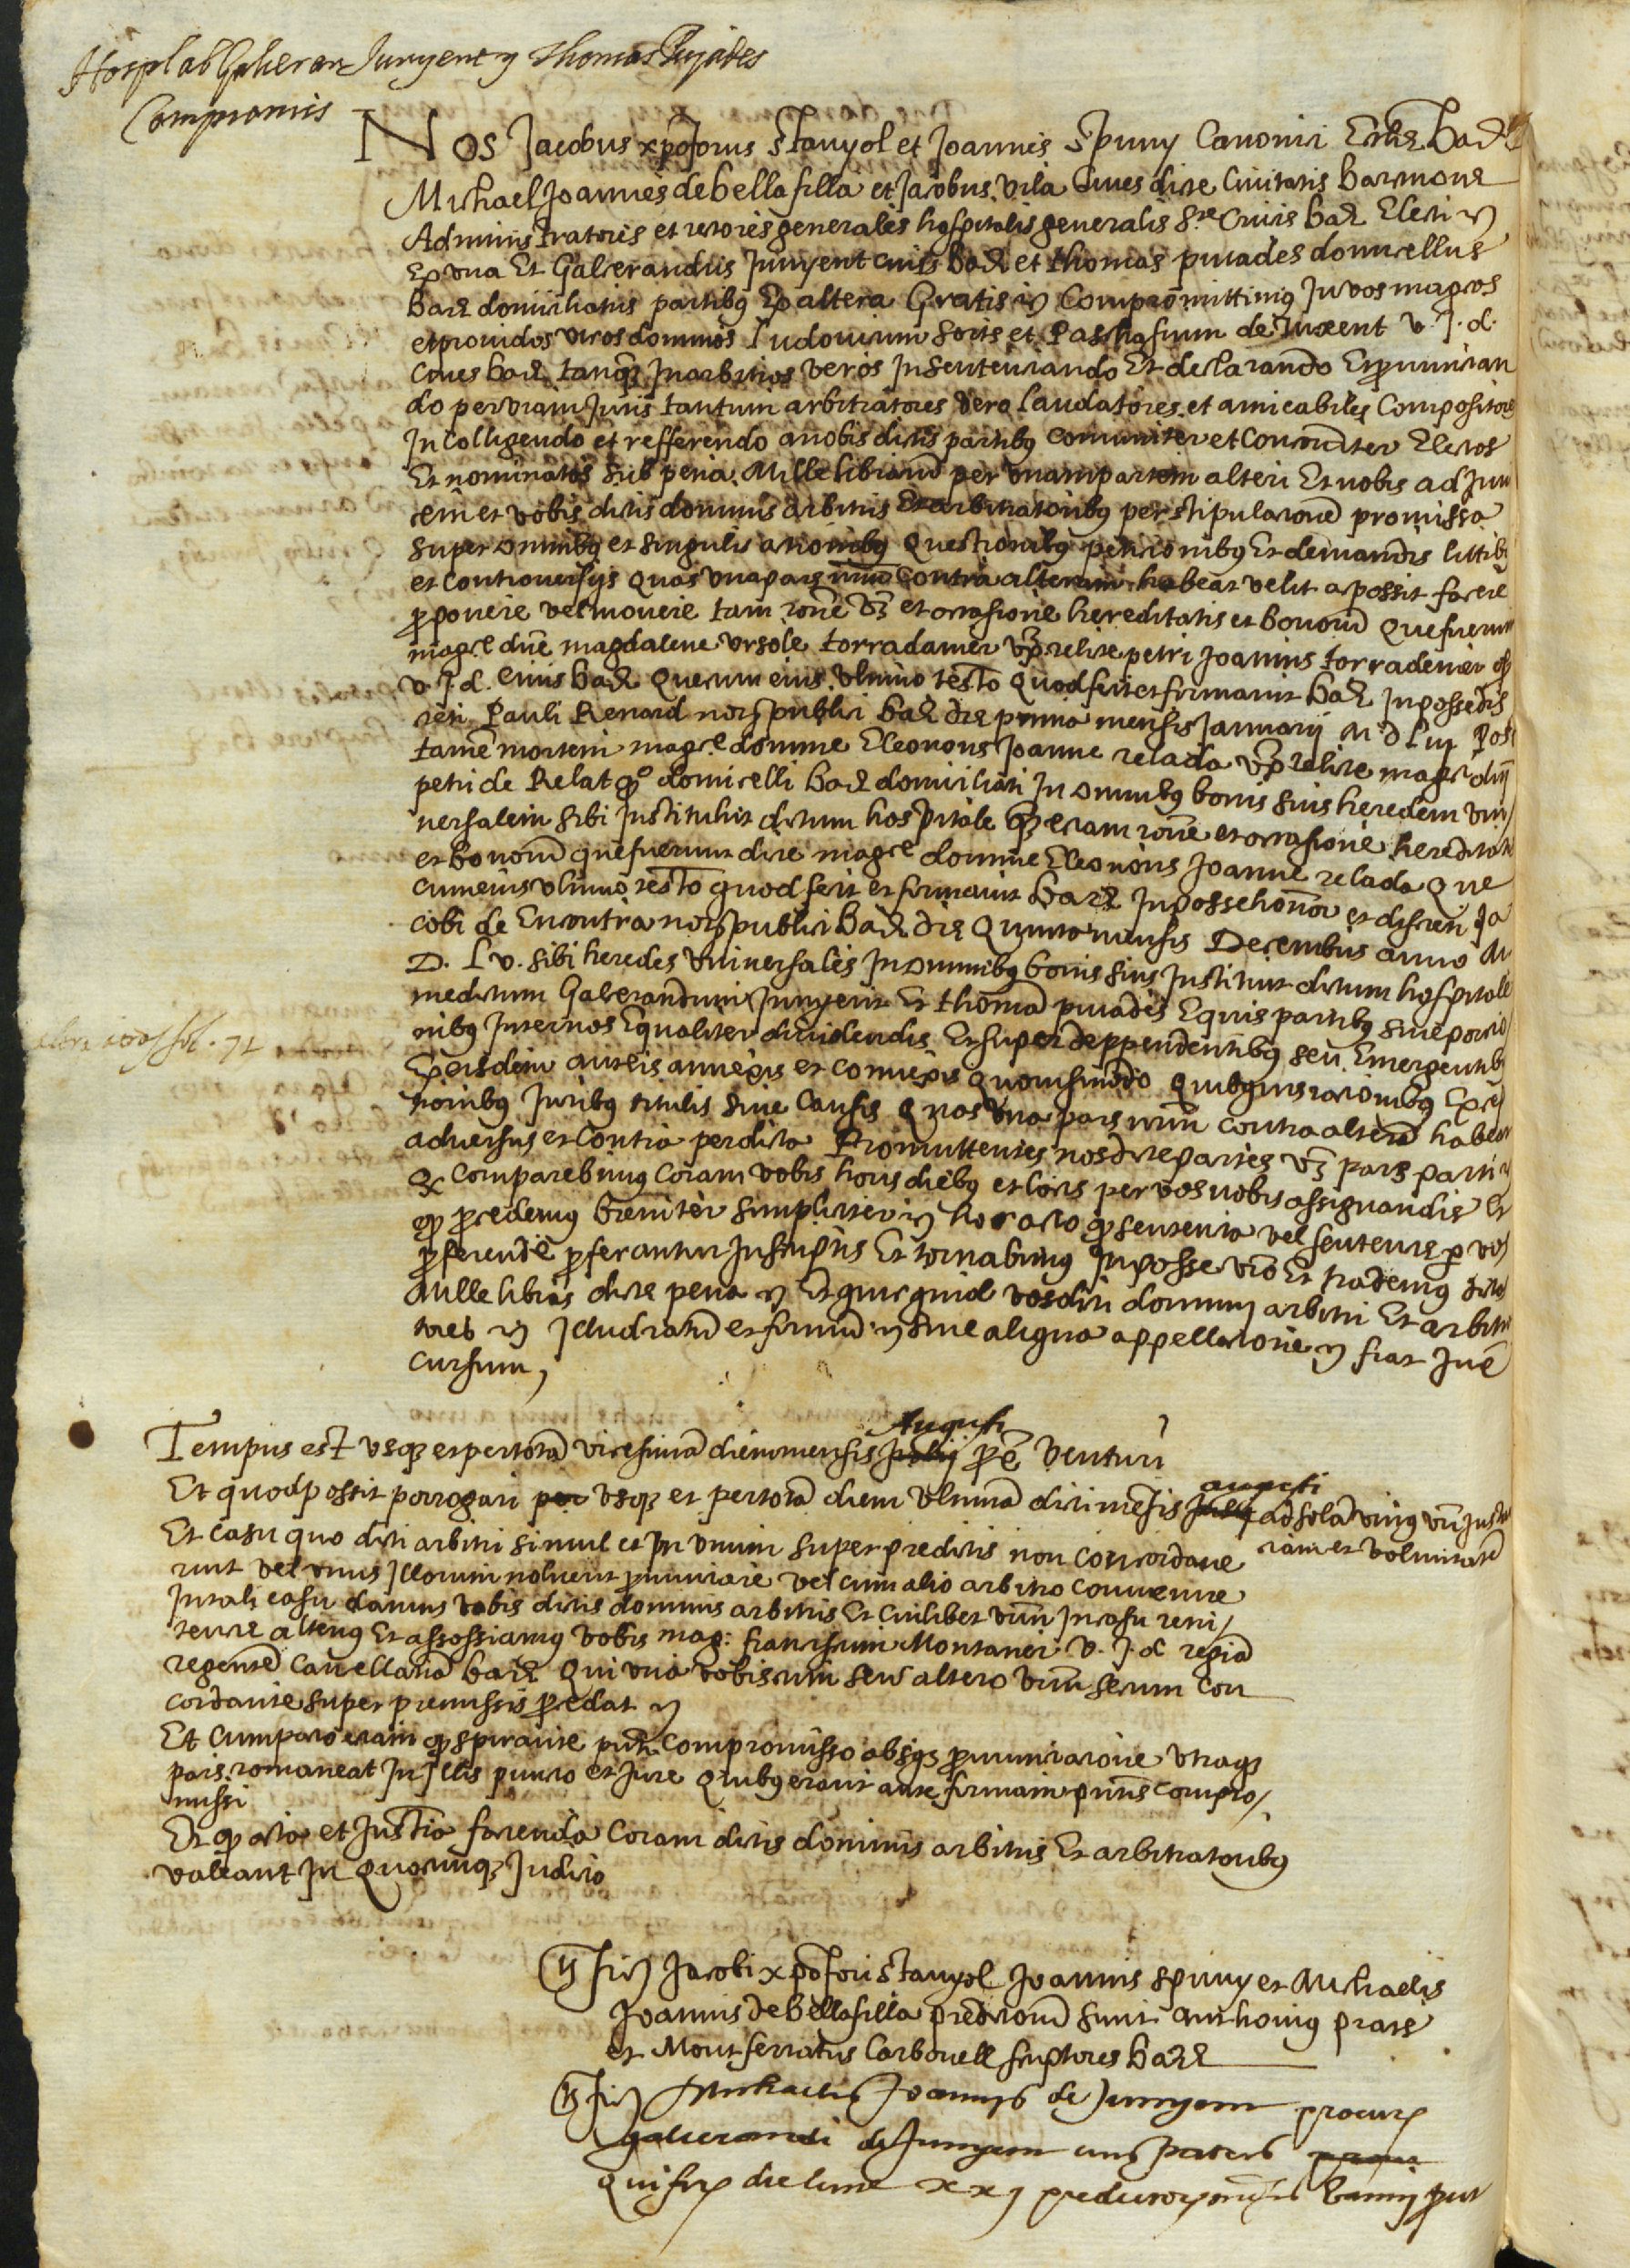 Hospl ab Galceran Junyent y Thomas Pujades
Compromis
Nos Jacobus xpoforus Stanyol et Joannes Spuny Canonici Ecclie Bar
Michael Joannes de bellafilla et Jacobus vila Cives dicte Civitatis barcinone
Administratores et rectores generales hospitalis generalis Civis bar Electi
Ex una Et Galcerandus Junyent civis bar et thomas puiades domicellus
Bar domiciliatus partibus Ex altera Gratis Compromittimus In vos magcos
et providos viros dominos Ludovicum Sorts et Paschasium de Juxent v. J. d.
Cives bar tanq In arbitros veros In sentenciando Et declarando Et pronuncian
do per viam Juris tantum arbitratores vero laudatores et amicabiles Compositores
In colligendo et refferendo a nobis dictis partibus comuniter et concorditer Electos
Et nominatos sub pena Mille librarum per unam partem alteri Et nobis ad Jnvi
cem et vobis dictis dominis arbitris Et arbitratoribus per stipulacione promissa
super omnibus et singulis actionibus Questionibus peticionibus Et demandis littibus
et controversijs quas una pars contra alteram habeat velit a possit facere
proponere vel movere tam rone et occasione hereditatis et bonorum que fuerunt
magce dne magdalene ursole torradamer relicte petri Joannis torrademer
v. J. d. civis bar que cum eius ultimo testo quod fecit et firmavit bar In posse dis
creti Pauli Renard noy publici bar die prima mensis Januarij M d Liij Post
tame mortem magce domine Eleonoris Joanne relada relicte magci dni
petri de Relat domicelli bar domiciliati In omnibus bonis suis heredem uni
versalem sibi Instituhit dictum hospitale eciam rone et occasione hereditatis
et bonorum que fuerunt dicte magce domine Eleonoris Joanne relada Que
cum eius ultimo testo quod fecit et firmavit bar In posse honor et discreti Ja
cobi de Encontra noy publici Bar die Quinto mensis Decembris anno M
D. Lv. sibi heredes universales In omnibus bonis suis Instituit dictum hospitale
me dictum Galcerandum Junyent Et thoma puiades Equis partibus sive porcio
nibus Inter nos Equaliter dividendis Et super deppendentibus seu Emergentibus
Ex eisdem annexis et connexis Quibusvis racionibus
Juribus titulis sive Causis Quas una pars contra altera habeat
adversus et contra perdicta Promittentes nos dicte partes pars parti
Comparebimus Coram vobis horis diebus et locis per vos nobis assignandis Et
procedemus breviter simpliciter hoc acto sentencia vel sentencie p vos
proferende proferantur In scriptis Et tornabimus In posse Et trademus
Mille libras dicte pena Et quicquid vos dicti domini arbitri Et arbitra
tores Illud ratum et firmum sine aliqua appellacione fiat
cursum,
liure fol. 71
Tempus est usq et per tota vicesima diem mensis Julij Augusti venturi
Et quod possit porrogari per usq et per tota diem ultima dicti mensis Julij augusti ad sola
ram et voluntate
Et casu quo dicti arbitri simul et In unum super predictis non concordave
rint vel unus Illorum noluerit pronunciare vel cum alio arbitro convenire
In tali casu damus vobis dictis dominis arbitris Et cuilibet In casu reni
tencie alterius Et assossiamus vobis mag: franciscum Montaner v. J. d regia
regente Cancellaria bar Qui una vobiscum seu altero secum con
cordante super premissis procedat
Et cum pacto eciam spirante Compromisso absqs pronunciacione utraqs
pars romaneat In Illis puncto et Jure Quibus erant ante firmam compro
missi
Et acta et Justicia facienda Coram dictis dominis arbitris Et arbitratoribus
valeant In Quocumqs Judicio
Jacobi xpofori Stanyol Joannis Spuny et Michaelis
Joannis de bellafilla predictorum sunt anthonius prats
et Montserratus Carbonell scriptores bar
Michaelis Joannis de Junyent procur
galcerandi de Junyent eius patris
Qui die lune xxj